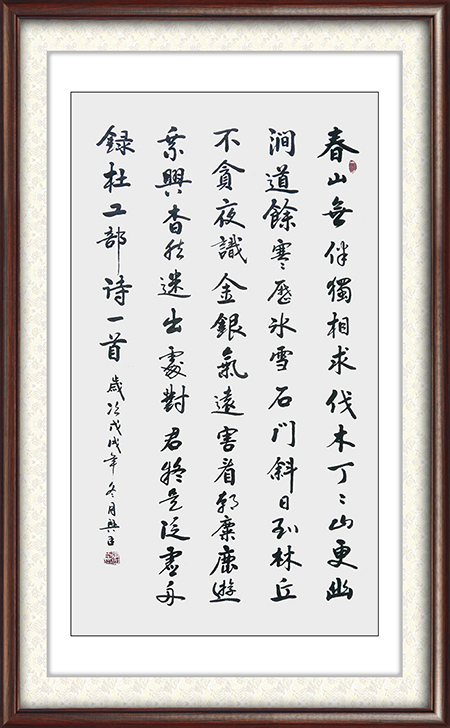 春山無伴獨相求伐木丁〻山更幽
澗道餘寒歷冰雪石門斜日到林丘
不貪夜識金銀氣遠害看朝麋鹿遊
乘興杳然迷出處對君疑是泛虛舟
録杜工部诗一首
歲次戊戌年冬月